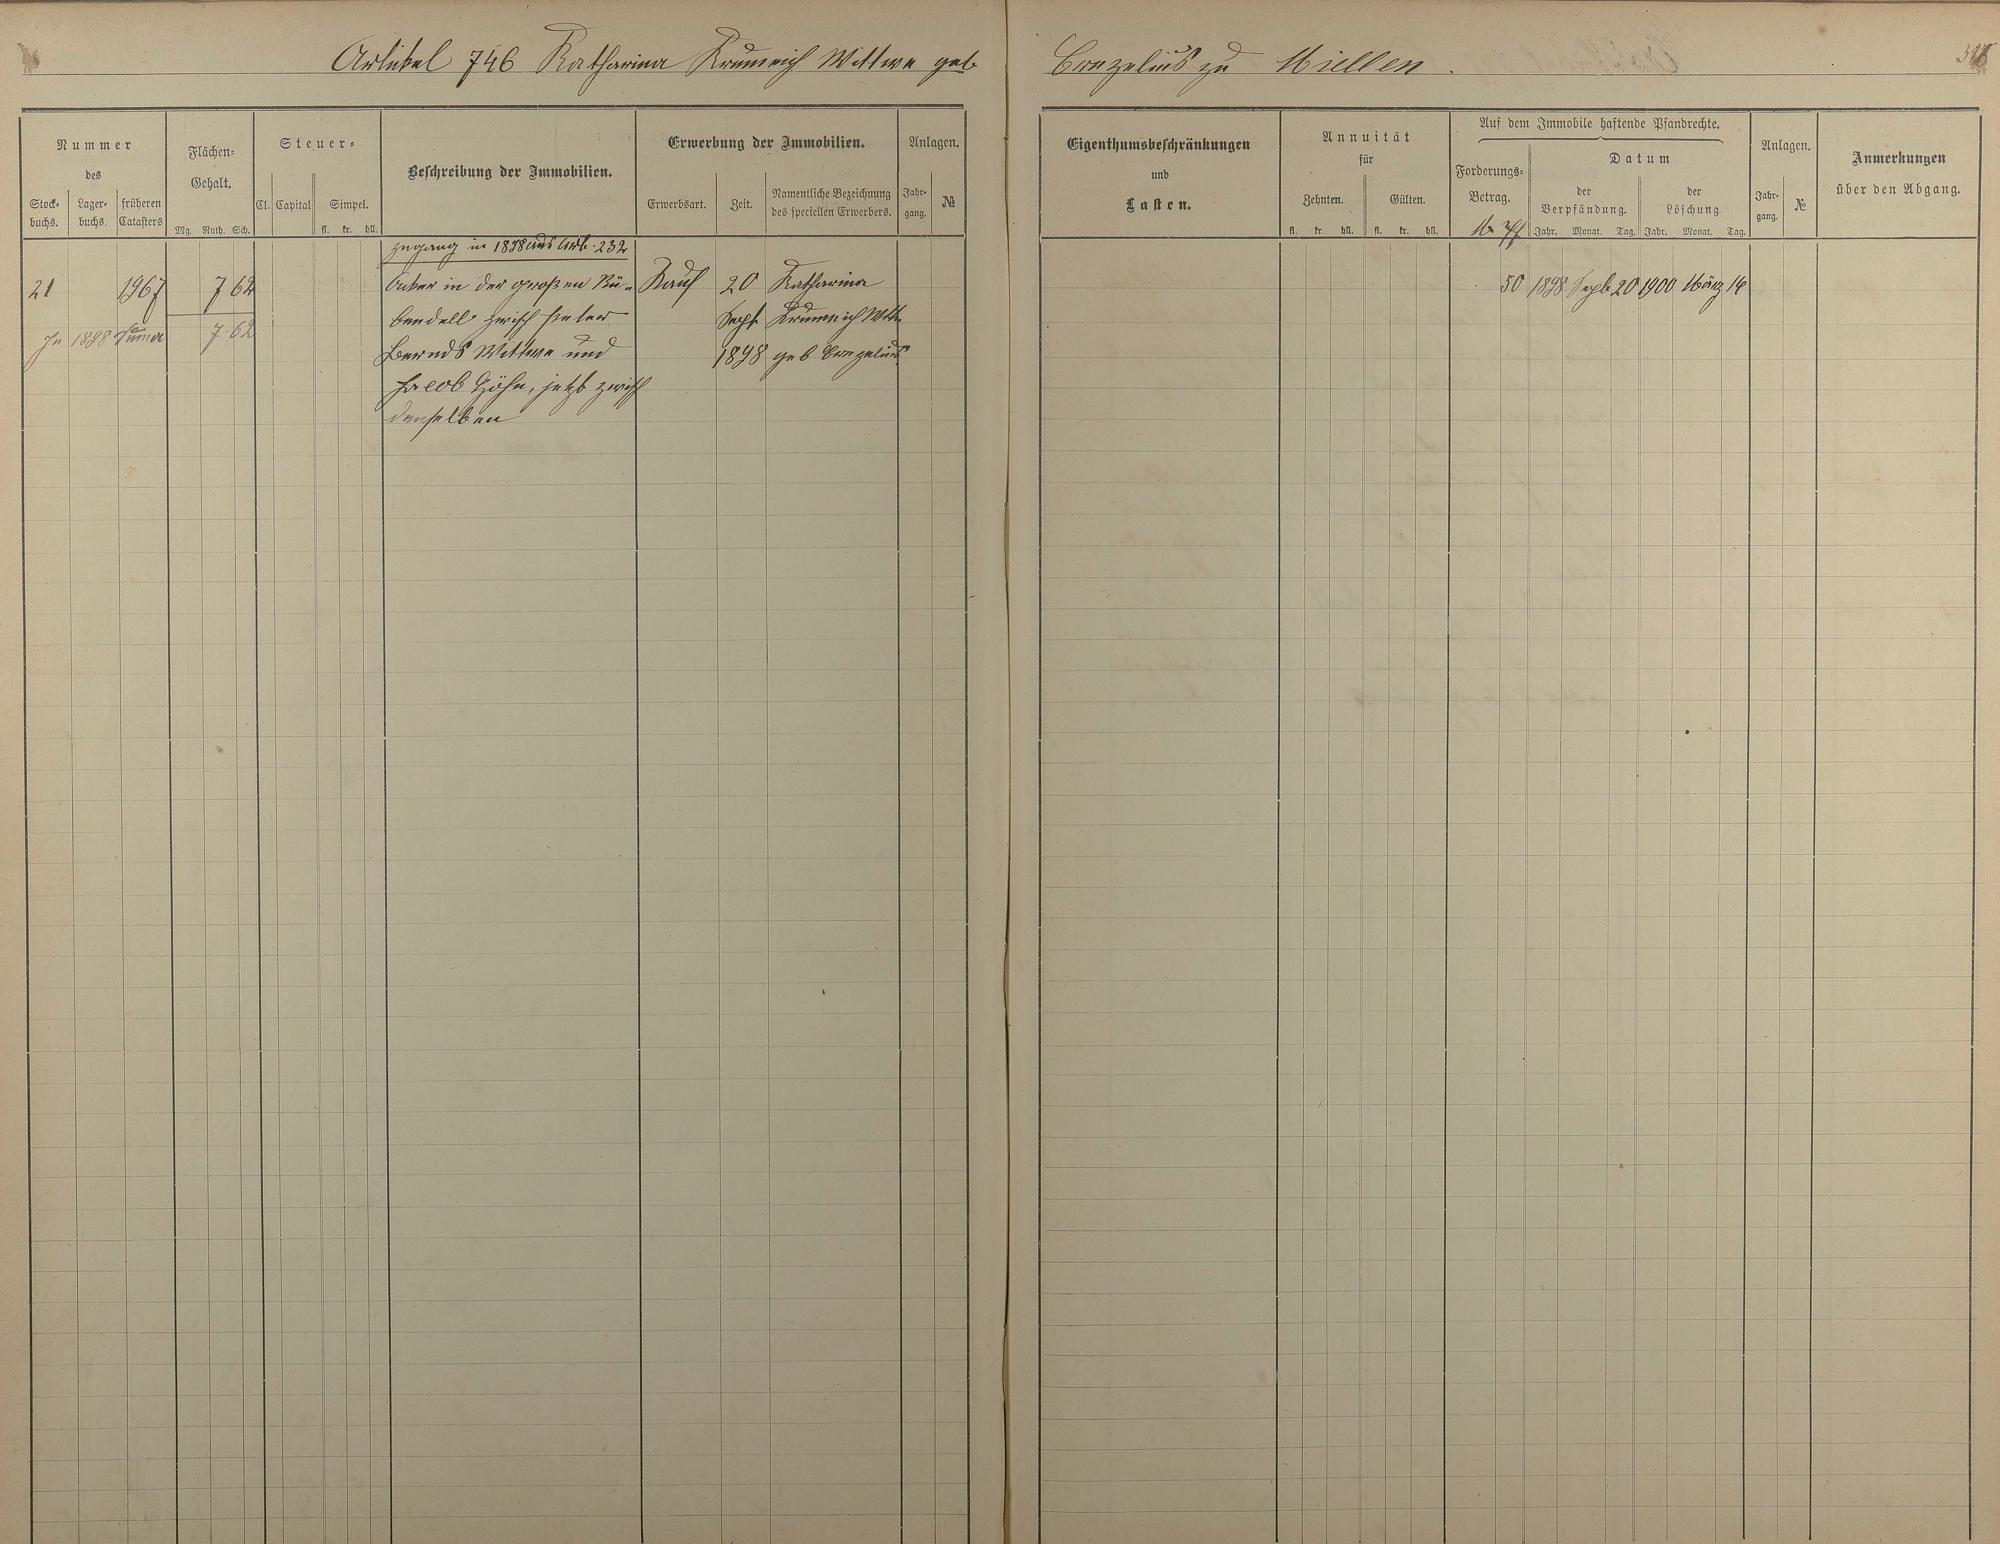 Artikel 746 Katharina Krumeich Wittwe geb Corzelius zu Miellen.
Nummer
des
Stock-
buchs.
Lager-
buchs.
früheren
Catasters
Flächen-
Gehalt.
Mg. Ruth. Sch.
Steuer-
Cl. Capital Simpel.
fl. kr. hll.
Beschreibung der Immobilien.
Erwerbung der Immobilien.
Erwerbsart. Zeit.
Namentliche Bezeichnung
des speciellen Erwerbers.
Anlagen.
Jahr-
gang.
№
Zugang in 1898 aus Art. 232
21 1967 7 62
Acker in der großen Rü-
bendell zwisch Peter
Bernds Wittwe und
Jacob Höhn, jetzt zwisch
denselben
Kauf
20
Sept
1898
Katharina
Krumeich Wtt.
geb Corzelius
In 1898 Suma 7 62
Eigenthumsbeschränkungen
und
Lasten.
Annuität
für
Zehnten. Gülten.
fl. kr. hll. fl. kr. hll.
Auf dem Immobile haftende Pfandrechte.
Forderungs-
Betrag.
M Pf
Datum
der
Verpfändung.
der
Löschung
Jahr. Monat. Tag. Jahr. Monat. Tag.
Anlagen.
Jahr-
gang.
№
Anmerkungen
über den Abgang.
50 1898 Sept 20 1900 März 14